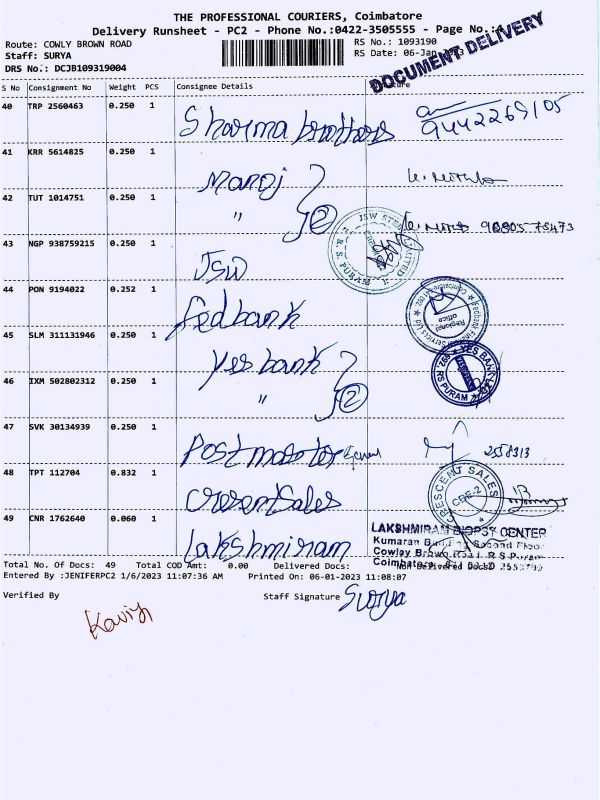 THE PROFESSIONAL COURIERS, Coimbatore
Delivery Runsheet - PC2 - Phone No.:0422-3505555 - Page No.:4
DOCUMENT DELIVERY
Route: COWLY BROWN ROAD
RS No.: 1093190
Staff: SURYA
RS Date: 06-Jan-2023
DRS No.: DCJB109319004
S No Consignment No Weight PCS Consignee Details
40 TRP 2560463 0.250 1 Sharma brothers 9442269105
41 KRR 5614825 0.250 1 Manoj
42 TUT 1014751 0.250 1 " 2
43 NGP 938759215 0.250 1 JSW
JSW STEEL LIMITED R. S. PURAM
44 PON 9194022 0.252 1 fedbank
Regional office
45 SLM 311131946 0.250 1 Yes bank
YES BANK RS PURAM
46 IXM 502802312 0.250 1 " 2
47 SVK 30134939 0.250 1 Postmaster General
48 TPT 112704 0.832 1 Cresent Sales
CRESCENT SALES CBE-2
49 CNR 1762640 0.060 1 Lakshmiram
LAKSHMIRAM BIOPSY CENTER
Kumaran Second Floor
Cowley Brown Road R S Puram
Coimbatore
Total No. Of Docs: 49 Total COD Amt: 0.00 Delivered Docs: Non Delivered Docs:
Entered By :JENIFERPC2 1/6/2023 11:07:36 AM Printed On: 06-01-2023 11:08:07
Verified By Staff Signature Surya